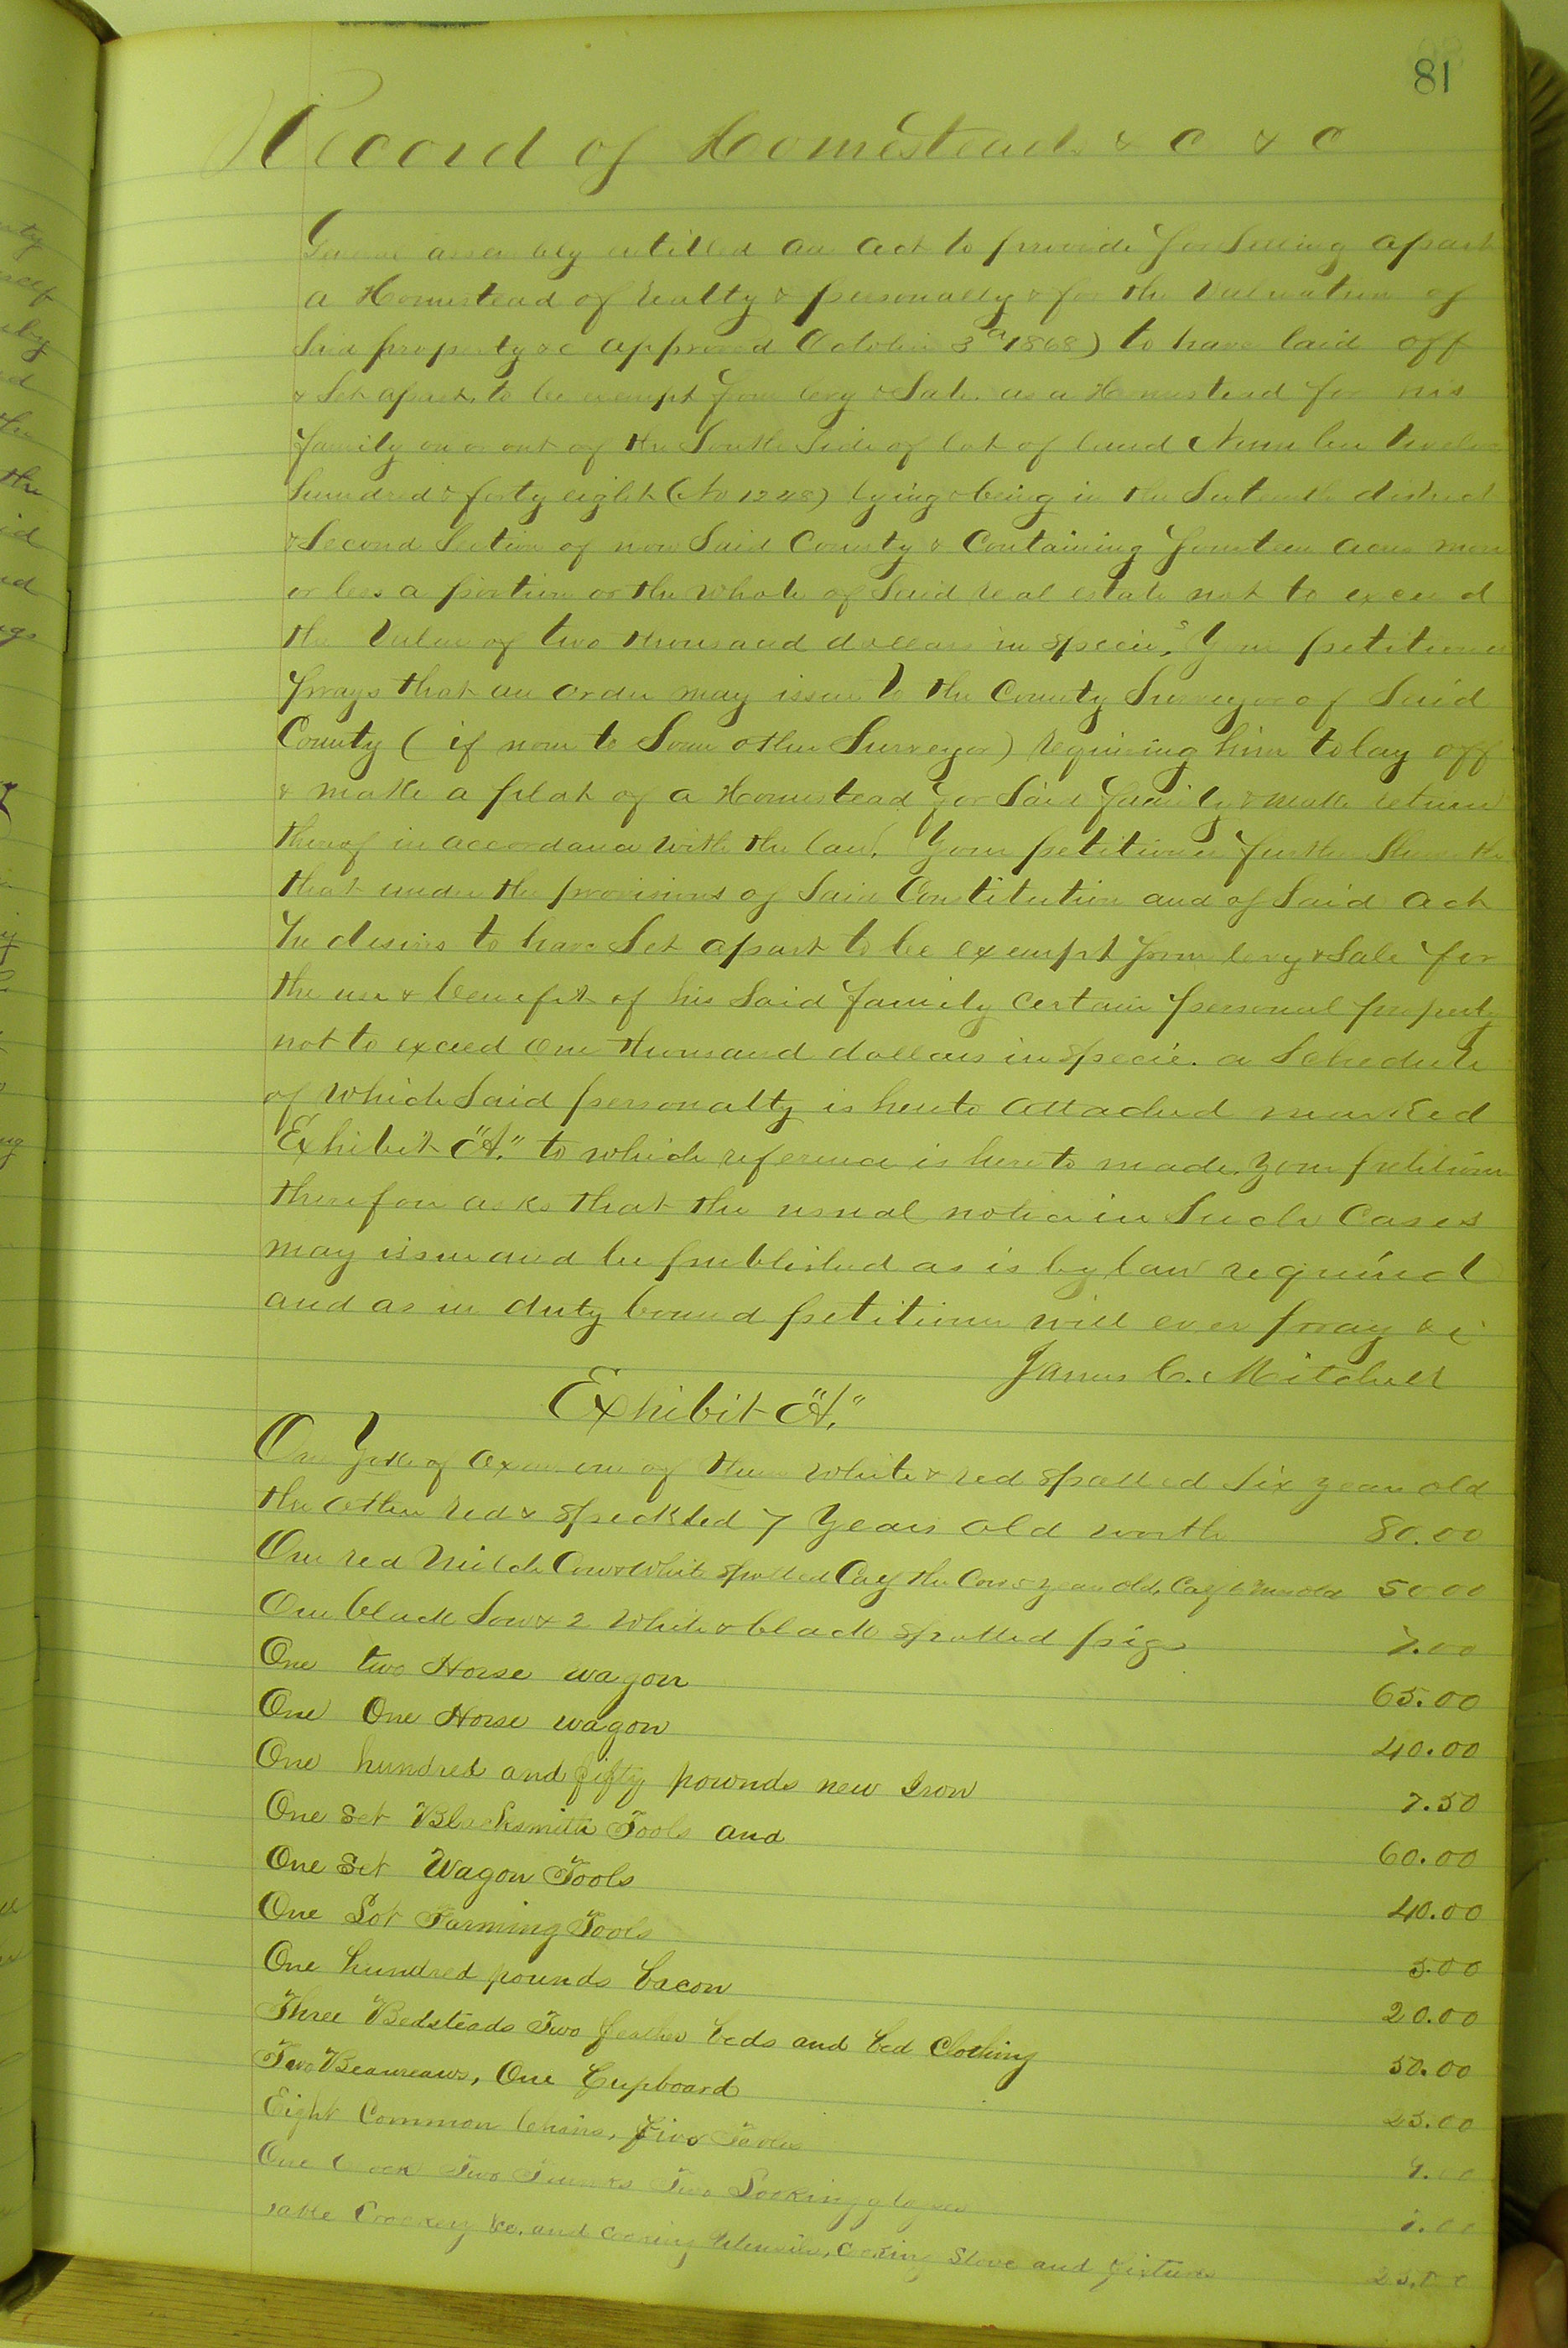 81
Record of Homestead & C & C
General assembly entitled an act to provide for Setting apart
a Homestead of realty & personalty & for the Valuation of
Said property &c approved October 3d 1868) to have laid off
& Set apart, to be exempt from levy & Sale as a Homestead for his
family on or out of the South Side of lot of land Number twelve
hundred & forty eight (No 1248) lying & being in the district
& Second Section of now Said County & Containing fourteen acres more
or less a portion or the whole of Said real estate not to exceed
the Value of two thousand dollars in specie, Your petitioner
prays that an order may issue to the County Surveyor of Said
County (if none to Some other Surveyor) requiring him to lay off
& make a plat of a Homestead for Said family & make return
thereof in accordance with the law. Your petitioner further Sheweth
that under the provisions of Said Constitution and of Said act
he desires to have Set apart to be exempt from levy & Sale for
the use & benefit of his Said family certain personal property
not to exceed one thousand dollars in specie. a Schedule
of which Said personalty is hereto attached marked
Exhibit "A." to which reference is hereto made. Your petitioner
therefore asks that the usual notice in Such Cases
may issue and be published as is by law required
and as in duty bound petitioner will ever pray &c
James C. Mitchell
Exhibit "A."
One Yoke of Oxen one of them white & red spotted Six year old
the other red & speckled 7 years old worth 80.00
One red Milch Cow & White Spotted Calf the Cow year old, Calf old 50.00
One black Sow & 2 White & black spotted pigs 7.00
One two Horse wagon 65.00
One One Horse wagon 40.00
One hundred and fifty pounds new Iron 7.50
One Set Blacksmith Tools and 60.00
One Set Wagon Tools 40.00
One Lot Farming Tools 5.00
One hundred pounds bacon 20.00
Three Bedsteads Two feather beds and bed Clothing 50.00
Two Beaureaws, One Cupboard 25.00
Eight Common Chairs, five Tables
One Clock Two Trunks Two Looking glasses
Table Crockery &c. and Cooking Utensils, Cooking Stove and fixtures